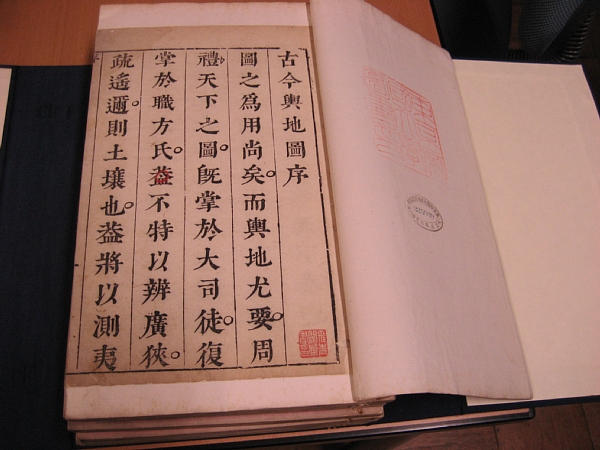 古今輿地圖序
圖之為用尚矣。而輿地尤要。周
禮天下之圖。既掌於大司徒。復
掌於職方氏。葢不特以辨廣狹。
疏遙邇。則土壤也。葢將以測夷